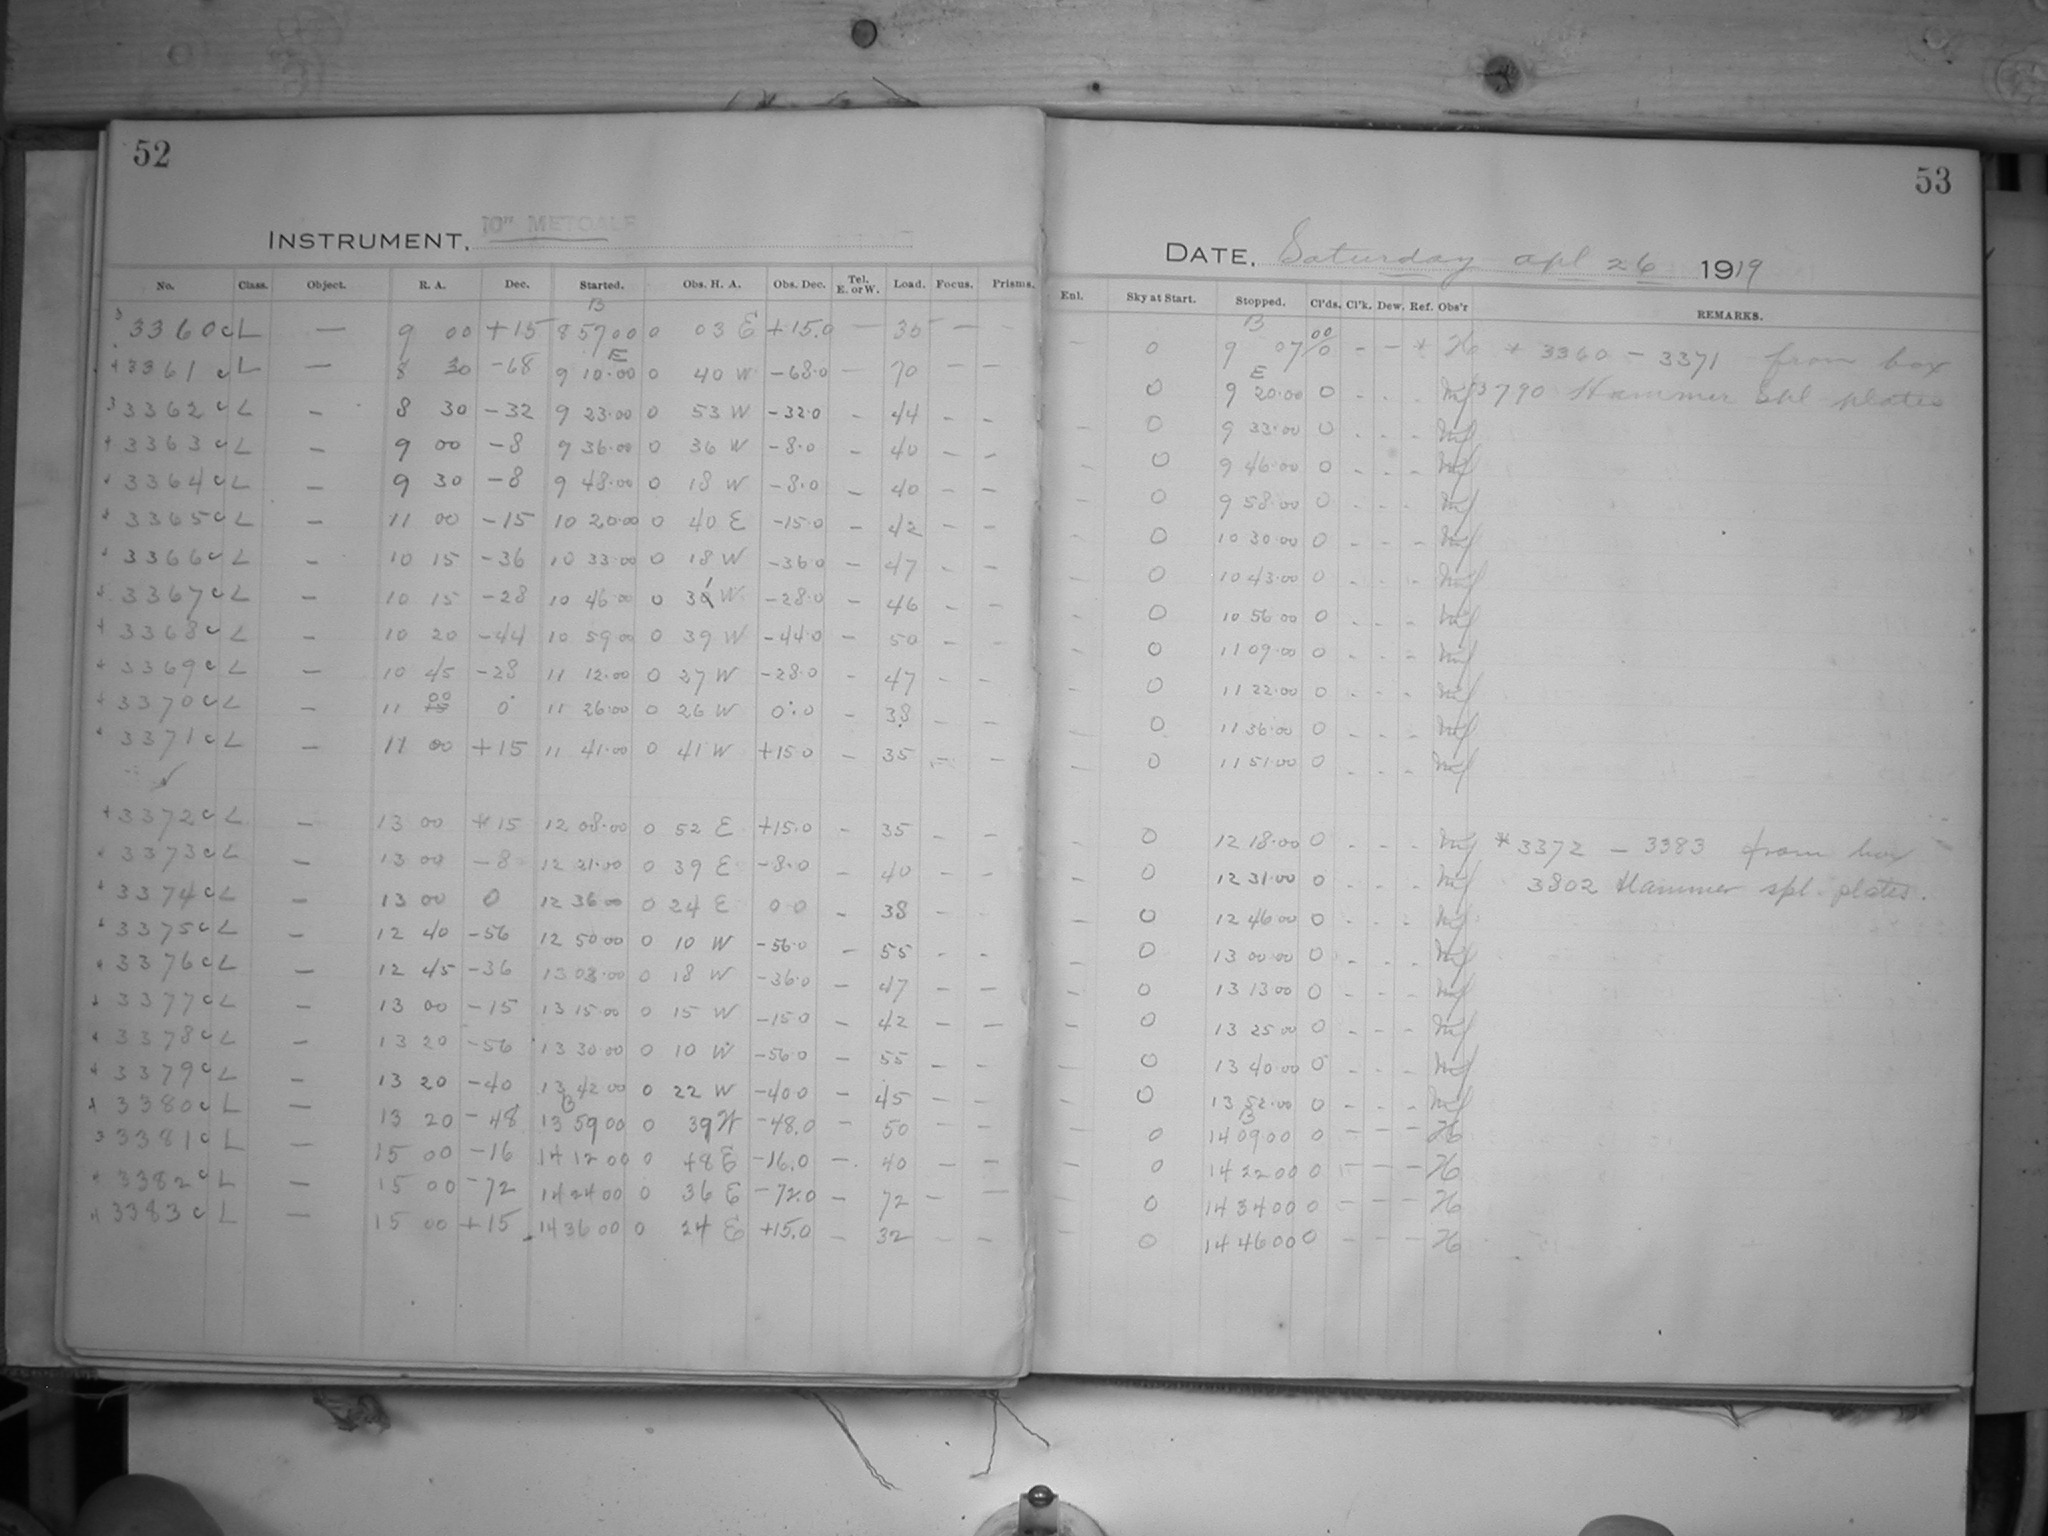 52
INSTRUMENT. 10" METCALF
No. Class. Object. R. A. Dec. Started. Obs. H. A. Obs. Dec. Tel. E. or W. Load. Focus. Prisms.
B
3360 c L — 9 00 +15 8 57 00 0 03 E +15.0 — 35 — —
E
3361 c L — 8 30 -68 9 10.00 0 40 W -68.0 — 70 — —
3362 c L - 8 30 -32 9 23.00 0 53 W -32.0 - 44 - -
3363 c L - 9 00 -8 9 36.00 0 36 W -8.0 - 40 - -
3364 c L - 9 30 -8 9 48.00 0 18 W -8.0 - 40 - -
3365 c L - 11 00 -15 10 20.00 0 40 E -15.0 - 42 - -
3366 c L - 10 15 -36 10 33.00 0 18 W -36.0 - 47 - -
3367 c L - 10 15 -28 10 46 00 0 31 W -28.0 - 46 - -
3368 c L - 10 20 -44 10 59 00 0 39 W -44.0 - 50 - -
3369 c L - 10 45 -28 11 12.00 0 27 W -28.0 - 47 - -
3370 c L - 11 00 0 11 26.00 0 26 W 0.0 - 38 - -
3371 c L - 11 00 +15 11 41.00 0 41 W +15.0 - 35 - -
3372 c L - 13 00 +15 12 08.00 0 52 E +15.0 - 35 - -
3373 c L - 13 00 -8 12 21.00 0 39 E -8.0 - 40 - -
3374 c L - 13 00 0 12 36 00 0 24 E 0 0 - 38 - -
3375 c L - 12 40 -56 12 50 00 0 10 W -56.0 - 55 - -
3376 c L - 12 45 -36 13 03.00 0 18 W -36.0 - 47 - -
3377 c L - 13 00 -15 13 15 00 0 15 W -15.0 - 42 - —
3378 c L - 13 20 -56 13 30.00 0 10 W -56.0 - 55 - -
3379 c L - 13 20 -40 13 42 00 0 22 W -40.0 - 45 - -
B
3380 c L — 13 20 -48 13 59 00 0 39 W -48.0 — 50 - -
3381 c L — 15 00 -16 14 12 00 0 48 E -16.0 — 40 — —
3382 c L — 15 00 -72 14 24 00 0 36 E -72.0 — 72 — —
3383 c L — 15 00 +15 14 36 00 0 24 E +15.0 — 32 — —
53
DATE. Saturday apl 26 1919
Enl. Sky at Start. Stopped. Cl'ds. Cl'k. Dew. Ref. Obs'r REMARKS.
B
— 0 9 07 00 0 - - * H * 3360 - 3371 from box
E
0 9 20.00 0 - - - Mf 3790 Hammer Spl plates
- 0 9 33.00 0 - - - Mf
- 0 9 46.00 0 - - - Mf
- 0 9 58.00 0 - - - Mf
- 0 10 30.00 0 - - - Mf
- 0 10 43.00 0 - - - Mf
- 0 10 56 00 0 - - - Mf
- 0 11 09.00 0 - - - Mf
- 0 11 22.00 0 - - - Mf
- 0 11 36.00 0 - - - Mf
- 0 11 51.00 0 - - - Mf
- 0 12 18.00 0 - - - Mf * 3372 - 3383 from box
- 0 12 31.00 0 - - - Mf 3802 Hammer spl. plates.
- 0 12 46 00 0 - - - Mf
- 0 13 00 00 0 - - - Mf
- 0 13 13 00 0 - - - Mf
- 0 13 25 00 0 - - - Mf
- 0 13 40.00 0 - - - Mf
- 0 13 52.00 0 - - - Mf
B
— 0 14 09 00 0 — — — H
— 0 14 22 00 0 — — — H
— 0 14 34 00 0 — — — H
— 0 14 46 00 0 — — — H